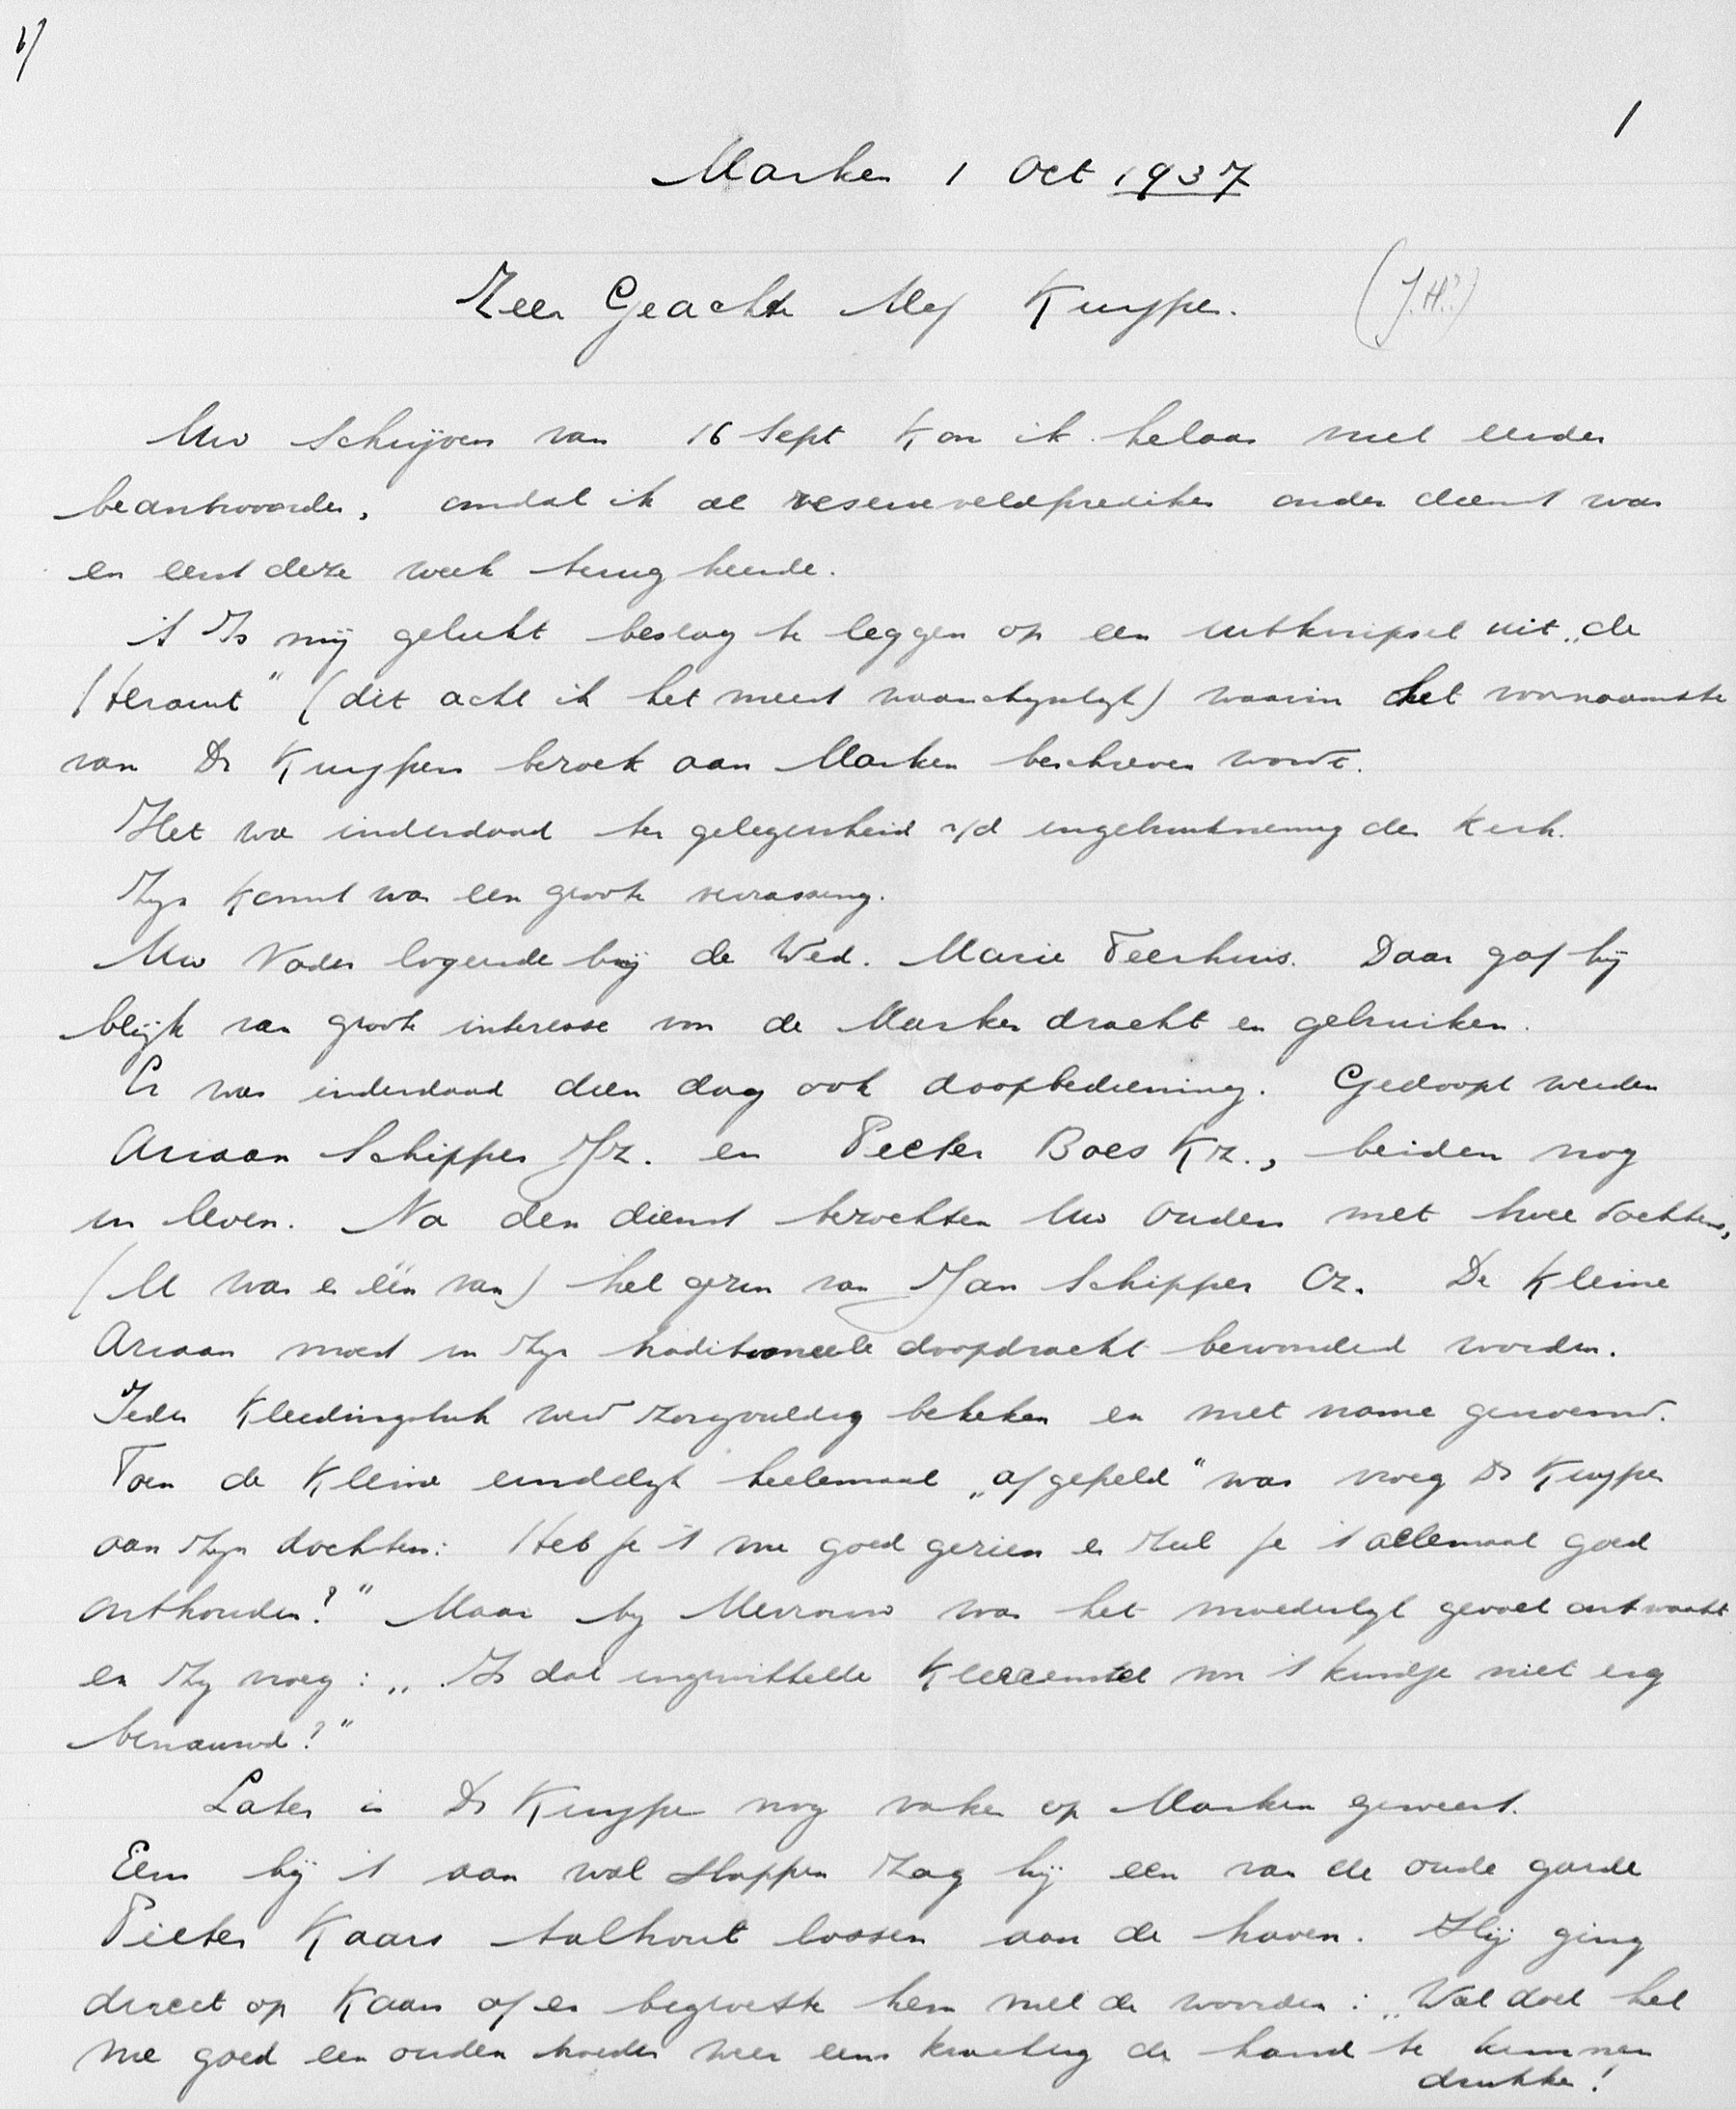 1
Marken 1 Oct 1937
Zeer Geachte Mej Kuyper. (J.H.?)
Uw schrijven van 16 Sept kon ik helaas niet eerder
beantwoorden, omdat ik als reserveveldprediker onder dienst was
en eerst deze week terug keerde.
't Is mij gelukt beslag te leggen op een uitknipsel uit „de
Heraut" (dit acht ik het meest waarschynlyk) waarin het voornaamste
van Dr Kuypers bezoek aan Marken beschreven wordt.
Het was inderdaad ter gelegenheid v/d ingebruikneming der Kerk.
Zyn komst was een groote verrassing.
Uw Vader logeerde bij de Wed. Marie Teerhuis. Daar gaf hij
blijk van groote interesse voor de Marker dracht en gebruiken.
Er was inderdaad dien dag ook doopbediening. Gedoopt werden
Ariaan Schipper Jz. en Pieter Boes Kz., beiden nog
in leven. Na den dienst bezochten Uw Ouders met twee dochters,
(U was er één van) het gezin van Jan Schipper Cz. De kleine
Ariaan moest in zyn traditioneele doopdracht bewonderd worden.
Ieder kleedingstuk werd zorgvuldig bekeken en met name genoemd.
Toen de kleine eindelyk heelemaal „afgepeld" was vroeg Dr Kuyper
aan zyn dochters: Heb je 't nu goed gezien en zul je 't allemaal goed
onthouden?" Maar by Mevrouw was het moederlyk gevoel ontwaakt
en zy vroeg: „Is dat ingewikkelde kleerenstel voor 't kindje niet erg
benauwd?"
Later is Dr Kuyper nog vaker op Marken geweest.
Eens bij 't aan wal stappen zag hij een van de oude garde
Pieter Kaars talhout lossen aan de haven. Hij ging
direct op Kaars af en begroette hem met de woorden: „Wat doet het
me goed een ouden broeder weer eens krachtig de hand te kunnen
drukke!